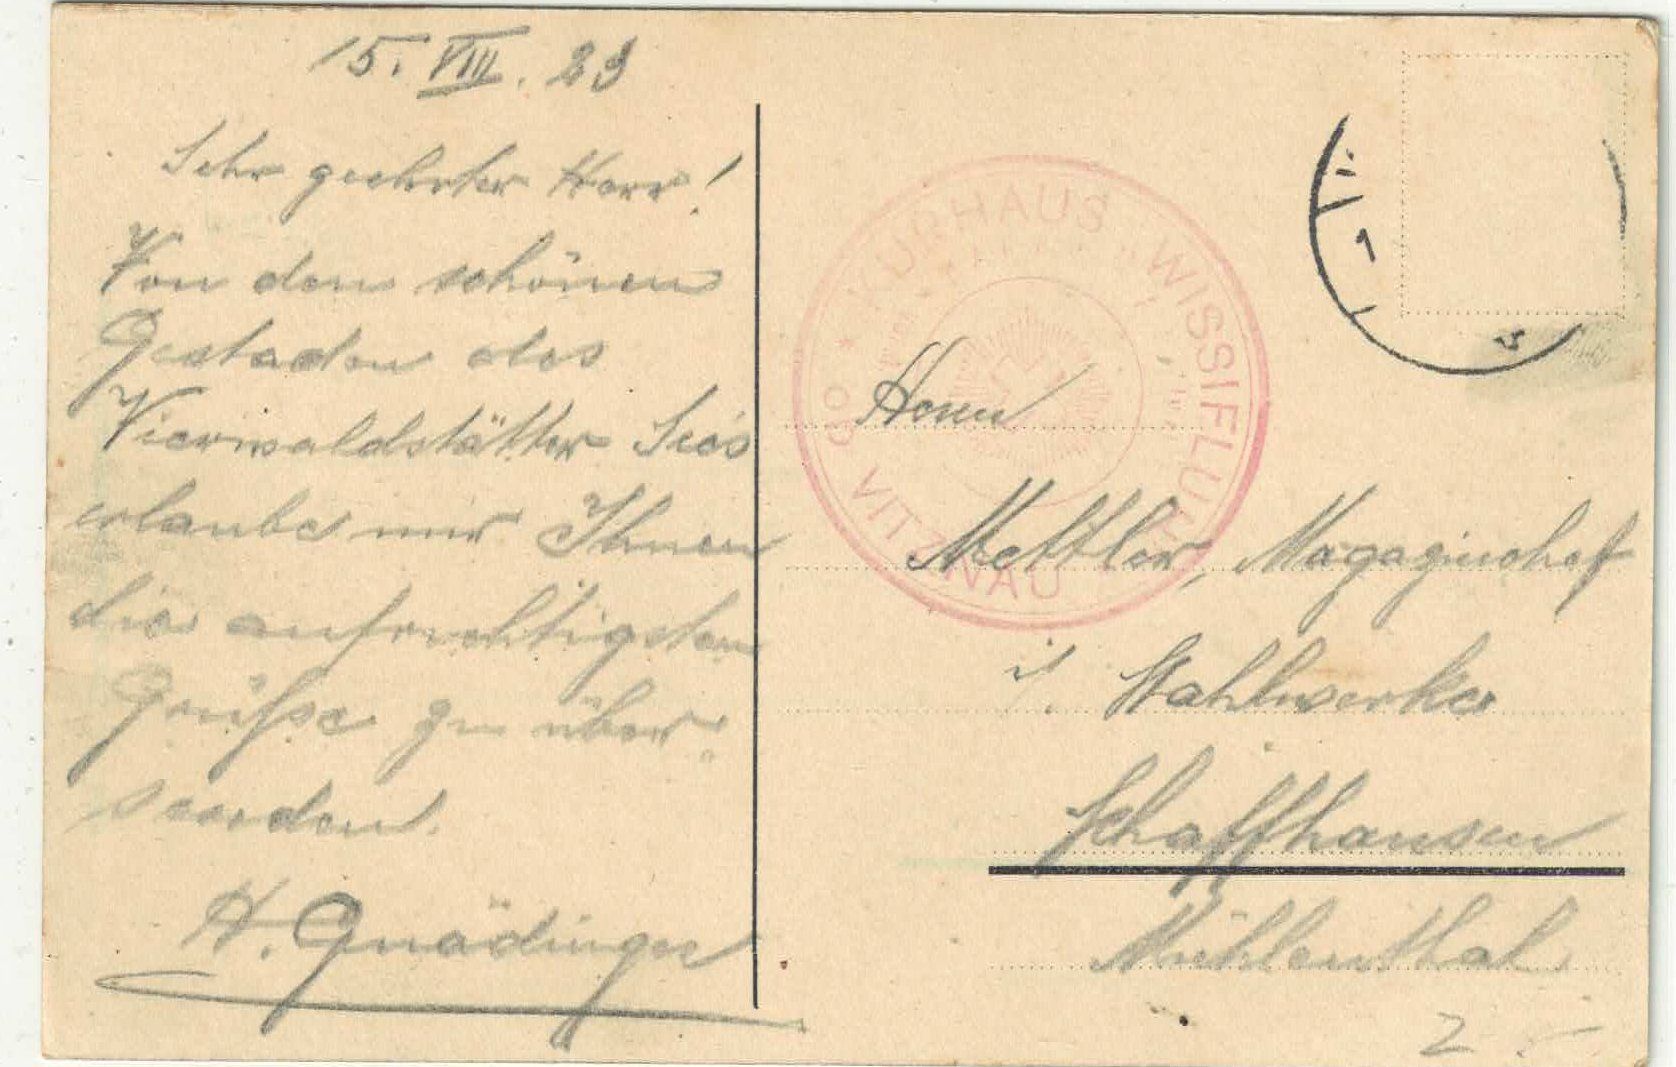 15. VIII. 23
Sehr geehrter Herr!
Von den schönen
Gestaden des
Vierwaldstätter Sees
erlaube mir Ihnen
die aufrichtigsten
Grüsse zu über-
senden.
H. Gnädinger
KURHAUS „WISSIFLUH"
OB VITZNAU
Herrn
Mettler, Magazinchef
i/ Stahlwerke
Schaffhausen
Mühlenthal
2.-